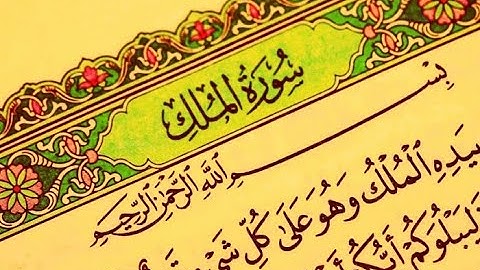 سُورَةُ المُلْكِ
بِسْمِ ٱللَّهِ ٱلرَّحْمَٰنِ ٱلرَّحِيمِ
بِيَدِهِ ٱلْمُلْكُ وَهُوَ عَلَىٰ كُلِّ شَىْءٍ
لِيَبْلُوَكُمْ أَيُّكُمْ